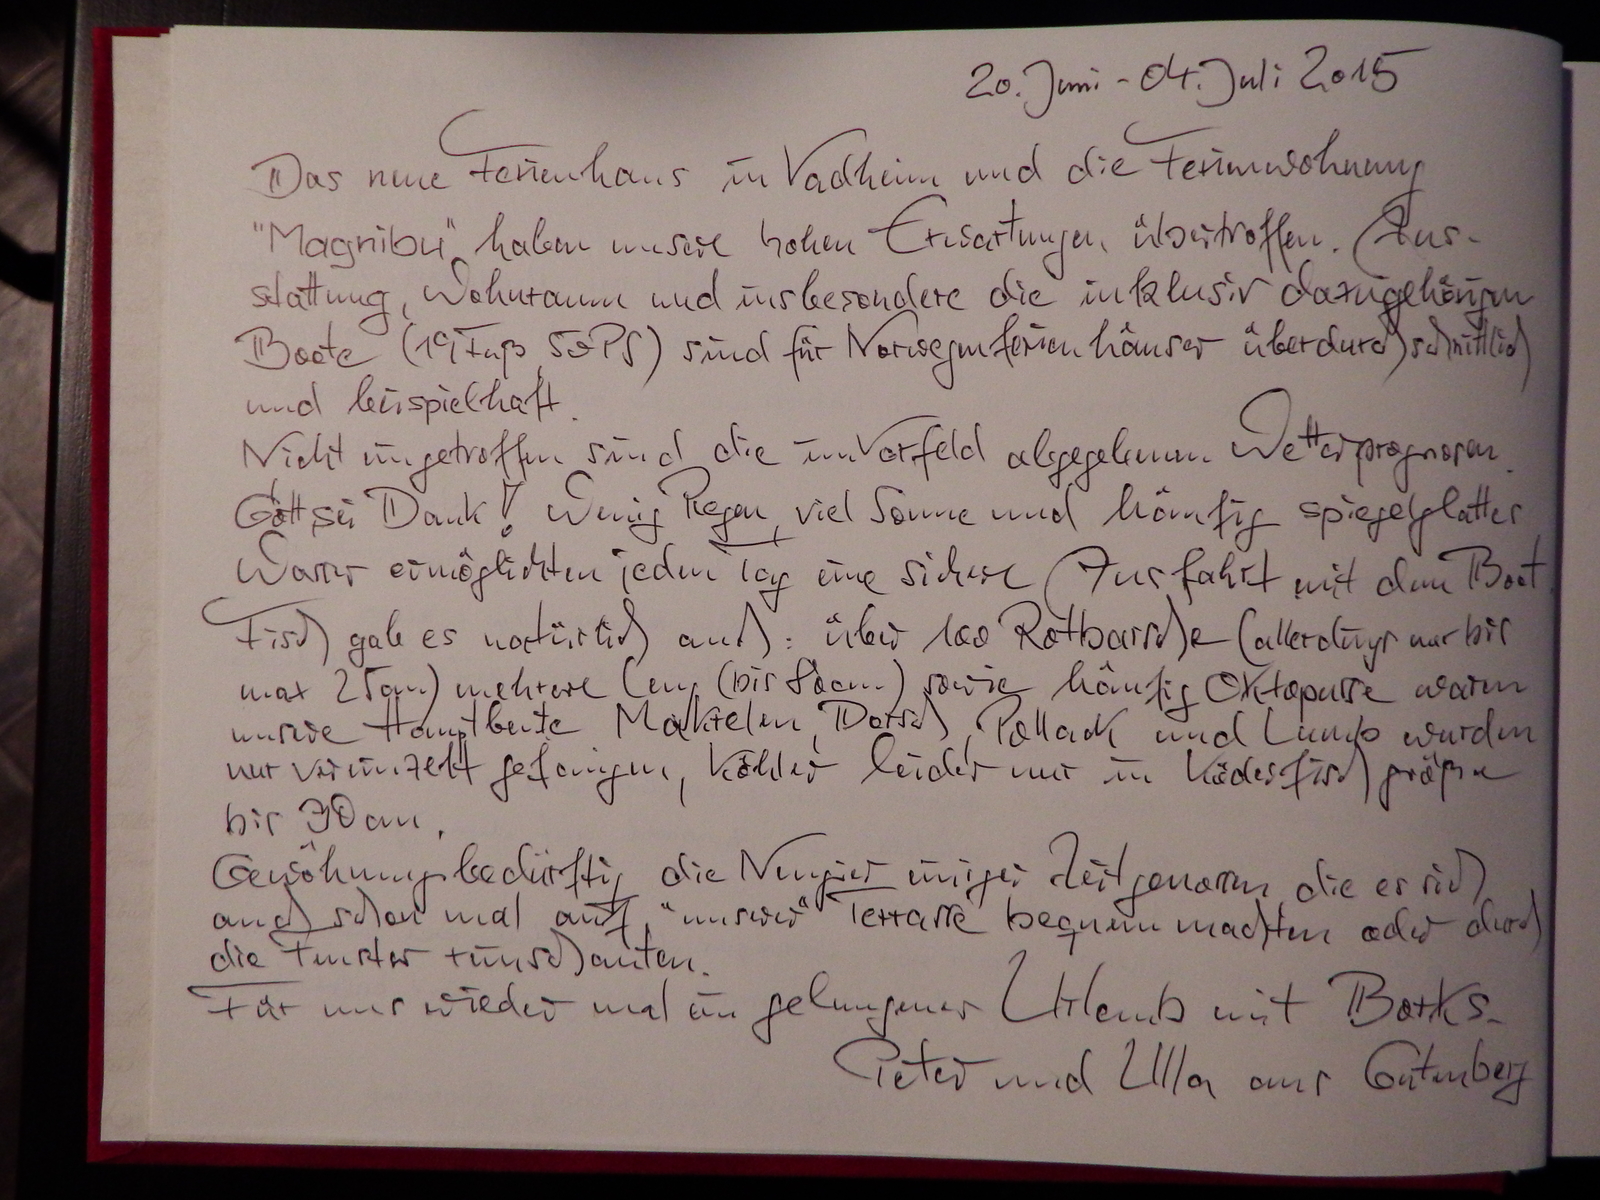 20. Juni - 04. Juli 2015
Das neue Ferienhaus in Vadheim und die Ferienwohnung
"Magnibu" haben unsere hohen Erwartungen übertroffen. Aus-
stattung, Wohnraum und insbesondere die inklusiv dazugehörigen
Boote (19 Fuß, 50 PS) sind für Norwegenferienhäuser überdurchschnittlich
und beispielhaft.
Nicht eingetroffen sind die im Vorfeld abgegebenen Wetterprognosen.
Gott sei Dank! Wenig Regen, viel Sonne und häufig spiegelglattes
Wasser ermöglichten jeden Tag eine sichere Ausfahrt mit dem Boot.
Fisch gab es natürlich auch: über 100 Rotbarsche (allerdings nur bis
max 25cm) mehrere Leng (bis 80cm) sowie häufig Oktopusse waren
unsere Hauptbeute. Makrelen, Dorsch, Pollack und Lumb wurden
nur vereinzelt gefangen, Köhler leider nur in Köderfischgröße
bis 30cm.
Gewöhnungsbedürftig die Neugier einiger Zeitgenossen, die es sich
auch schon mal auf "unserer" Terrasse bequem machten oder durch
die Fenster reinschauten.
Für uns wieder mal ein gelungener Urlaub mit Borks.
Peter und Ulla aus Gutenberg